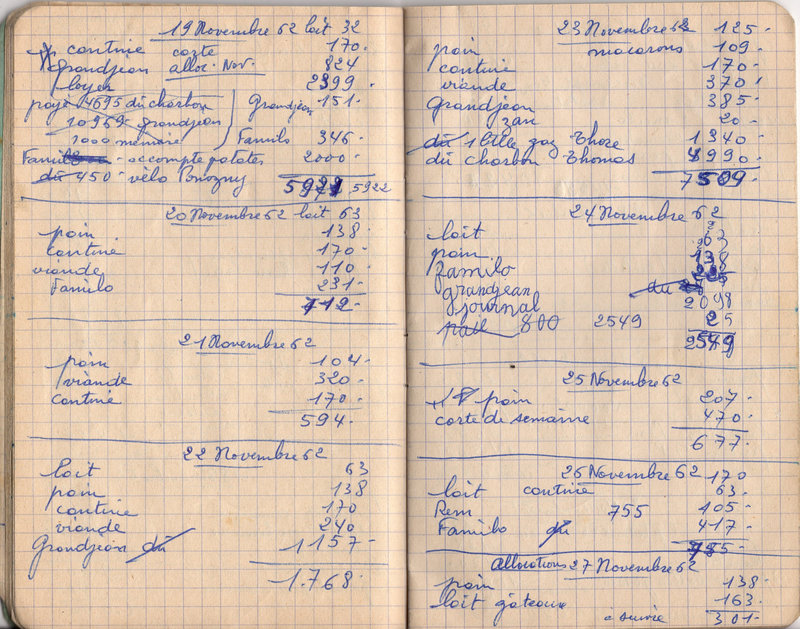 19 Novembre 62 lait 32
cantine carte 170.
Grandjean alloc. Nov. 824
loyer 2399
payé 14695 du charbon Grandjean 151.
10969 grandjean
1000 mémaire Familo 346.
Famil - accompte patates 2000.
du 450 vélo Ponozny 5922 5922
20 Novembre 62 lait 63
pain 138.
cantine 170.
viande 110.
Familo 231.
712.
21 Novembre 62
pain 104.
viande 320.
cantine 170.
594.
22 Novembre 62
lait 63
pain 138
cantine 170
viande 240
Grandjean du 1157.
1.768.
23 Novembre 62 125.
pain macarons 109.
cantine 170.
viande 370
grandjean 385.
zan 20.
du 1 btlle gaz Thoze 1340.
du charbon Thomas 4990.
7509.
24 Novembre 62
lait 63
pain 138
familo
grandjean du
journal 2098
paie 800 2549 25
2549
25 Novembre 62
pain 207.
carte de semaine 470.
677.
26 Novembre 62 170
lait cantine 63.
Rem 755 105.
Familo du 417.
785.
Allocations 27 Novembre 62
pain 138.
lait gâteaux 163.
à suivre 301.